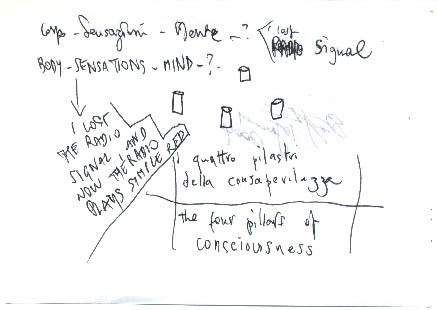 Corpo - Sensazioni - Mente - ?
I lost
Signal
BODY - SENSATIONS - MIND - ?
I LOST
THE RADIO
SIGNAL AND
NOW THE RADIO
PLAYS SIMPLE RED
i quattro pilastri
della consapevolezza
the four pillars of
consciousness